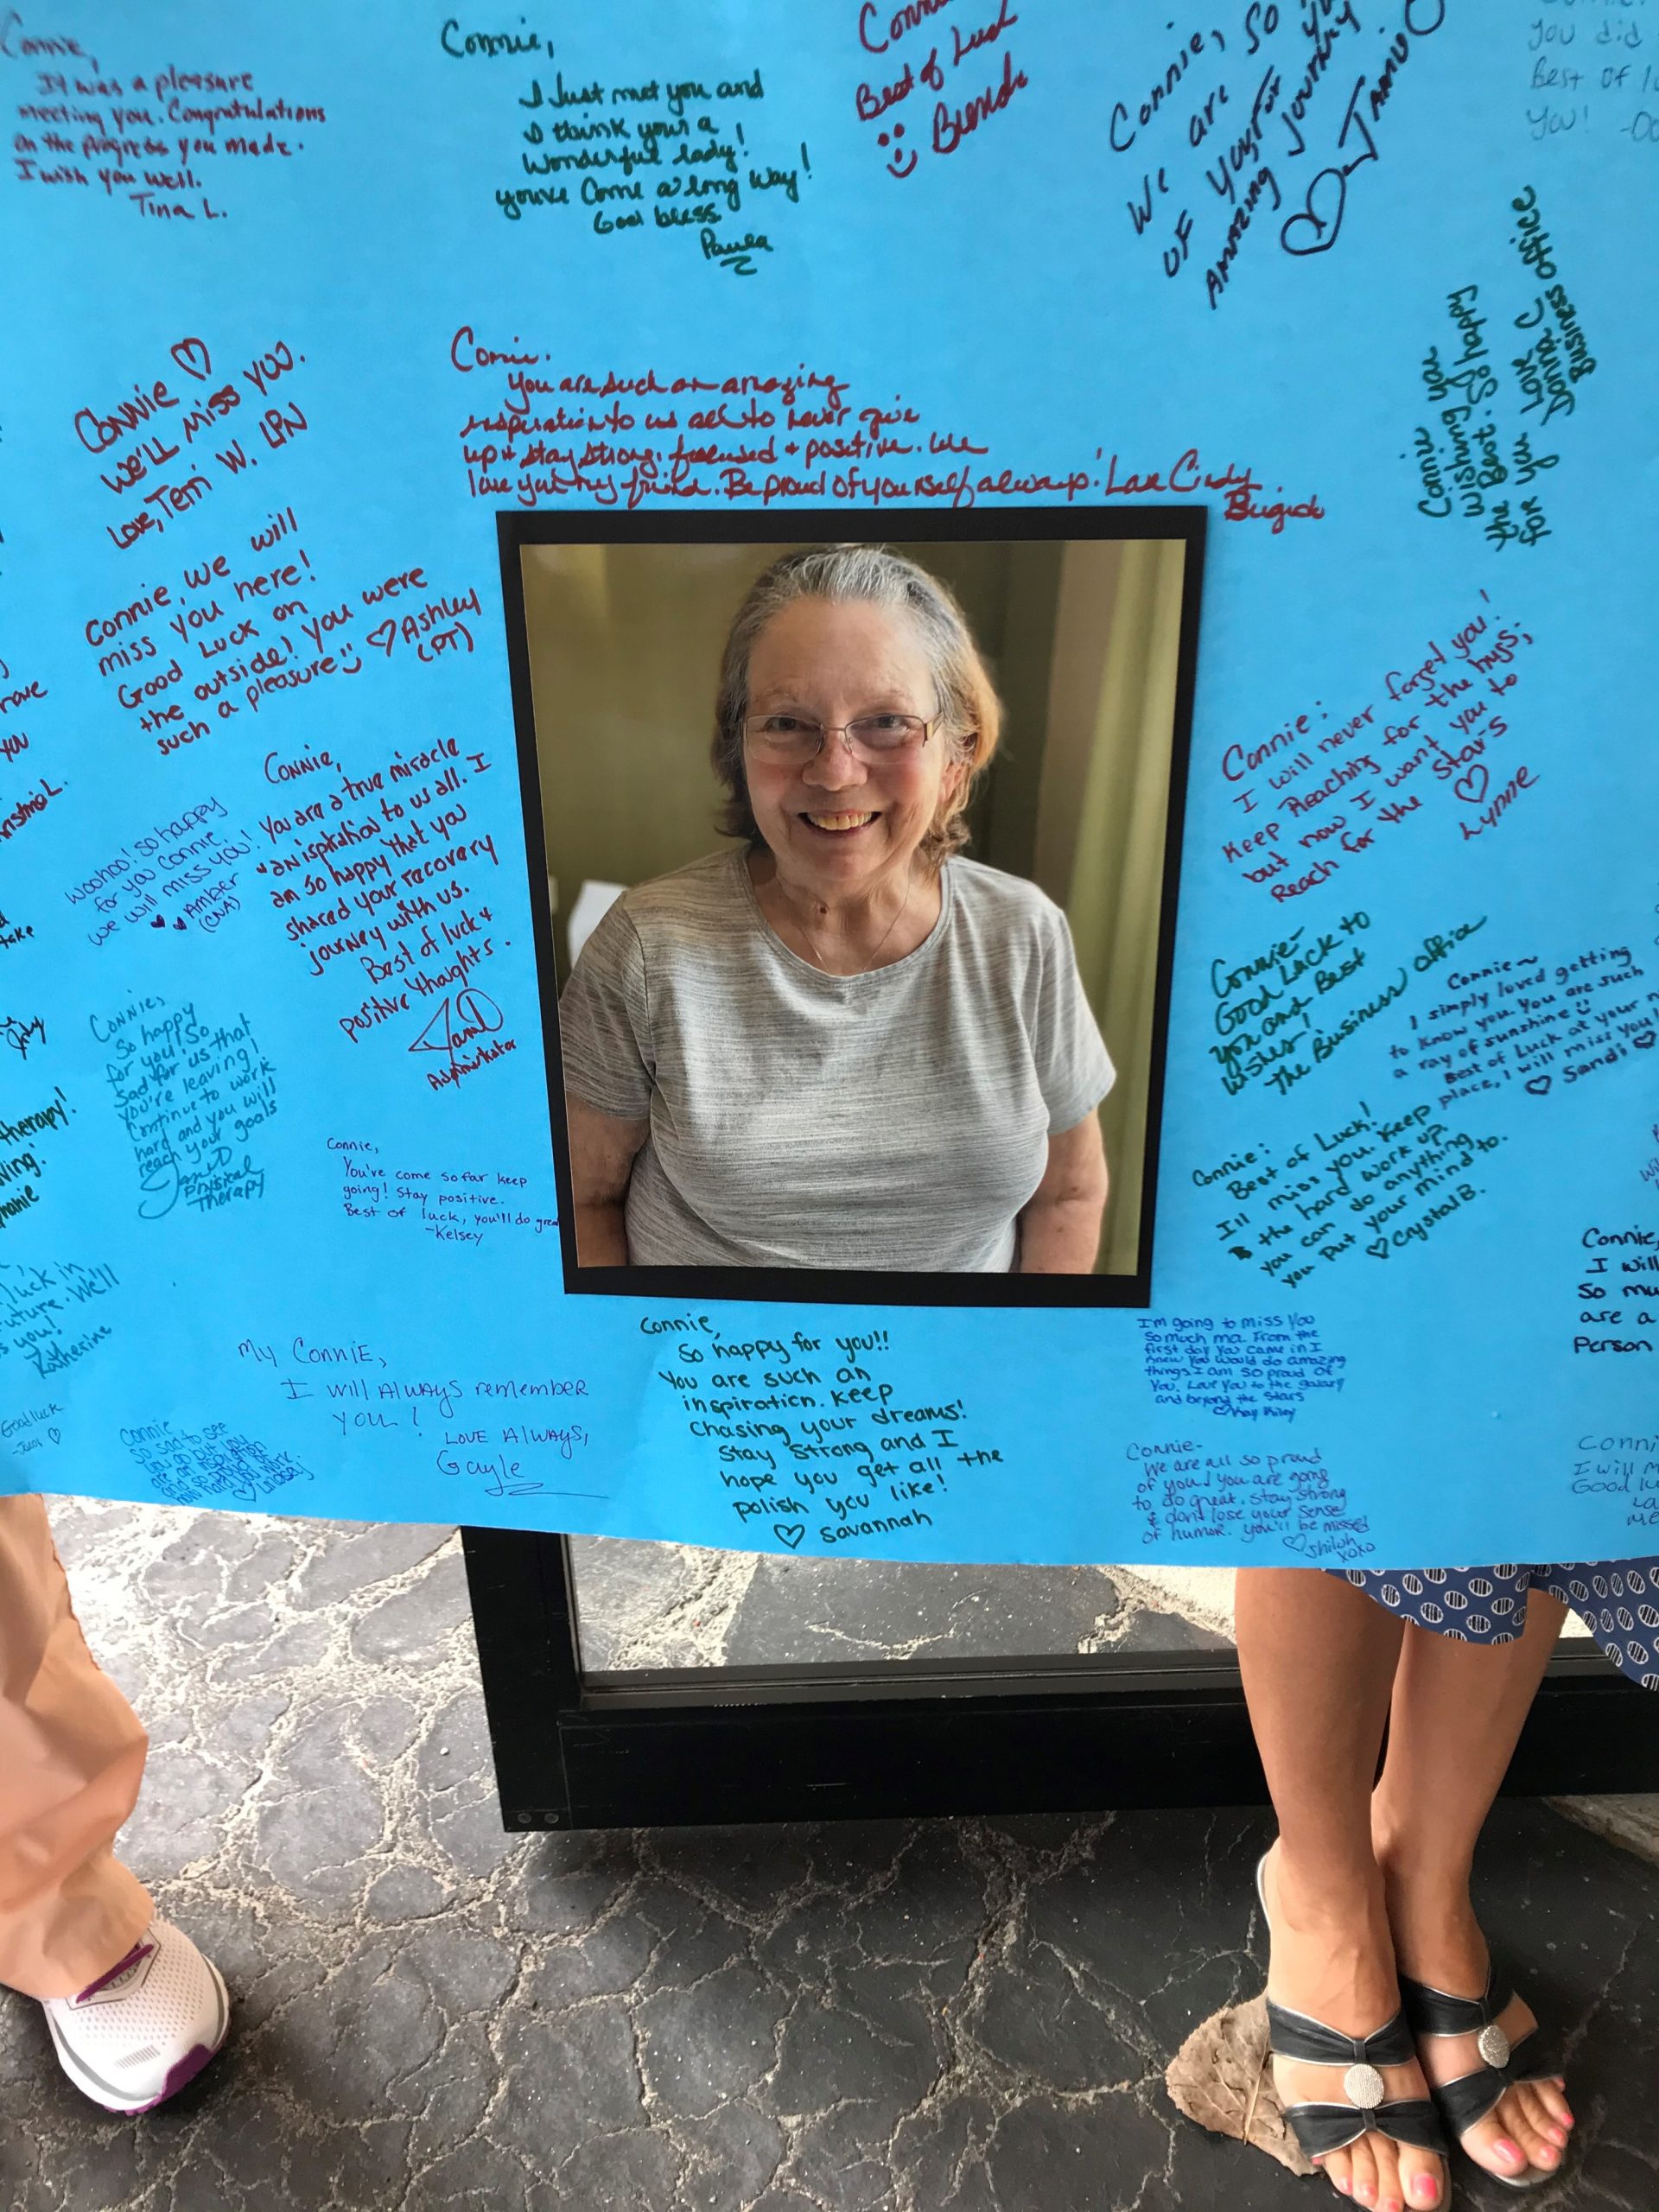 Connie,
It was a pleasure
meeting you. Congratulations
on the progress you made.
I wish you well.
Tina L.
Connie,
I Just met you and
I think your a
Wonderful lady!
you've Come a long way!
God bless
Paula
Best of Luck
Connie, so
We are
OF your
Amazing Journey
you did
Best of
You!
Connie
We'll miss you.
Love, Terri W. LPN
Connie.
You are such an amazing
inspiration to us all to never give
up & stay strong, focused & positive. We
love you my friend. Be proud of yourself always! Love Cindy
Connie
wishing you
the Best. So happy
for you Love
Donna C
Business office
Connie, we will
miss you here!
Good Luck on
the outside! You were
such a pleasure
Ashley
(PT)
Connie:
I will never forget you!
Keep Reaching for the hugs;
but now I want you to
Reach for the Stars
Lynne
rave
you
Woohoo! so happy
for you Connie.
we will miss you!
Amber
(CNA)
Connie,
You are a true miracle
& an ispiration to us all. I
am so happy that you
shared your recovery
journey with us.
Best of luck &
positive thoughts.
Administrator
take
Connie-
Good Luck to
you and Best
Wishes!
The Business office
Connie~
I simply loved getting
to know you. You are such
a ray of sunshine
Best of Luck at your
place, I will miss you!
Sandi
Connie,
So happy
for you! So
sad for us that
you're leaving!
Continue to work
hard and you will
reach your goals
Physical
Therapy
therapy!
Connie,
You've come so far keep
going! Stay positive.
Best of luck, you'll do great
-Kelsey
Connie:
Best of Luck!
I'll miss you. Keep
the hard work up.
you can do anything
you put your mind to.
Crystal B.
Connie,
I will
So mu
are a
Person
luck in
We'll
you!
Katherine
My Connie,
I will Always remember
you!
Love Always,
Gayle
Connie,
So happy for you!!
You are such an
inspiration. Keep
Chasing your dreams!
Stay Strong and I
hope you get all the
polish you like!
Savannah
I'm going to miss you
so much ma. From the
first day you came in I
knew you would do amazing
things. I am so proud of
you. Love you to the galaxy
and beyond the stars
Good luck
Connie
so sad to see
you go but you
are an
inspiration
Connie-
We are all so proud
of you! you are going
to do great. stay strong
& don't lose your sense
of humor. you'll be missed
Shiloh
xoxo
Conni
I will m
Good lu